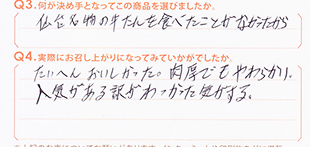 Q3.何が決め手となってこの商品を選びましたか。
仙台名物の牛たんを食べたことがなかったから
Q4.実際にお召し上がりになってみていかがでしたか。
たいへんおいしかった。肉厚でもやわらかい。
人気がある訳がわかった気がする。